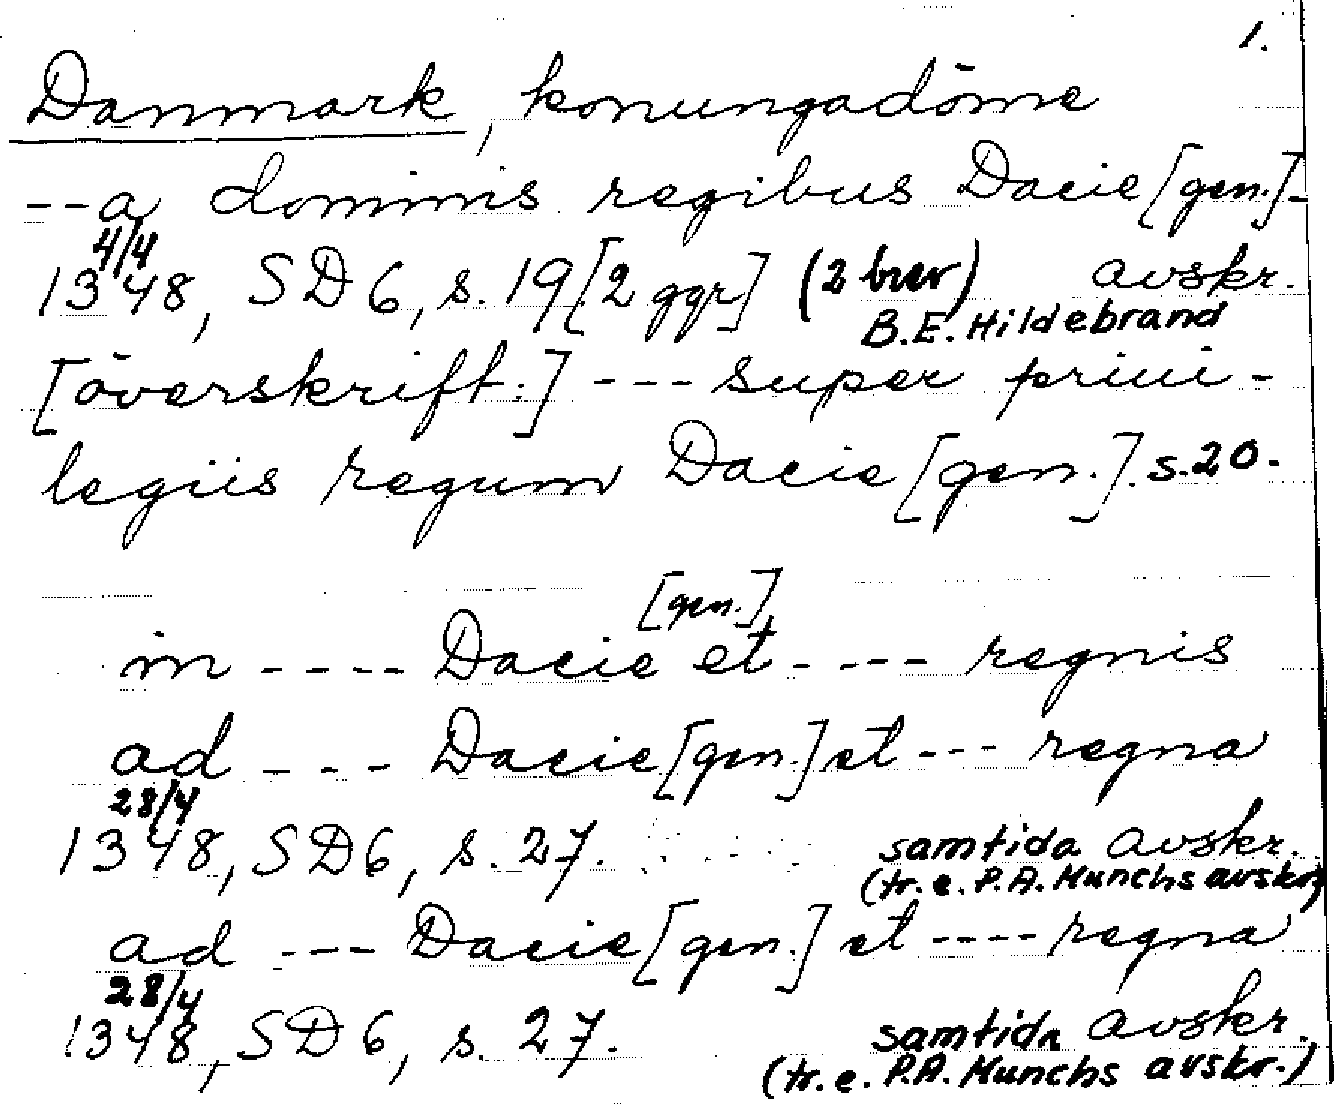 1.
Danmark, konungadöme
--a dominis regibus Dacie [gen.]-
4/4
1348, SD6, s. 19 [2 ggr] (2 brev) avskr.
B.E. Hildebrand
[överskrift:] --- super priui-
legiis regum Dacie [gen.]. s. 20.
[gen.]
in ---- Dacie et ---- regnis
ad --- Dacie [gen.] et --- regna
28/4
1348, SD6, s. 27. samtida avskr.
(tr. e. P.A. Munchs avskr.)
ad --- Dacie [gen.] et ---- regna
28/4
1348, SD6, s. 27. samtida avskr.
(tr. e. P.A. Munchs avskr.)